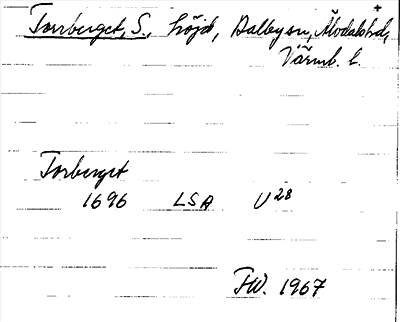 +
Torrberget, S., höjd, Dalby sn, Älvdals hd,
Värml. l.
Torberget
1696 LSA U28
FW. 1967